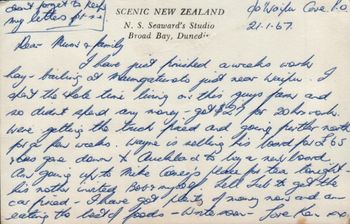 Don't forget to keep
my letters for me
SCENIC NEW ZEALAND
N. S. Seaward's Studio
Broad Bay, Dunedin
c/o Waipu Cove P.O.
21-1-67.
Dear Mum & family
I have just finished a weeks work
hay-bailing at Maungaturoto just near Waipu. I
spent the whole time living on this guys farm and
so didnt spend any money - got $ for 20 hrs work.
were getting the truck fixed and going further north
for a few weeks. Wayne is selling his board for £65
& has gone down to Auckland to buy a new board.
Am going up to Mike place for tea tonight -
his mother invited Bob & myself. Tell Jub to get the
car fixed - I have got plenty of money now and am
eating the best of foods - Write soon - Love